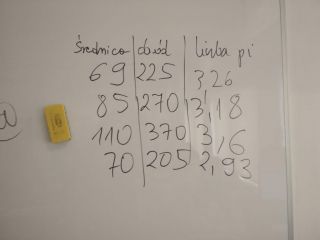 średnica obwód liczba pi
69 225 3,26
85 270 3,18
110 370 3,6
70 205 2,93